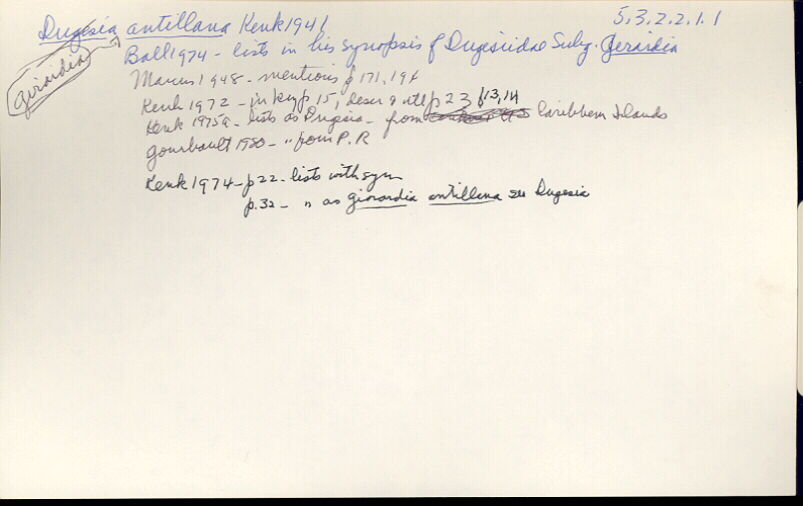 5.3.2.2.1.1
Dugesia antillana Kenk 1941
girardia
Ball 1974 - lists in his synopsis of Dugesiidae Subg. Girardia
Marcus 1948 - mentions p 171, 194
Kenk 1972 - in key p 15, descr & ill p 23 f 13, 14
Kenk 1975a - lists as Dugesia - from Caribbean Islands
Gourbault 1980 - " from P.R
Kenk 1974 - p 22 - lists with syn
p. 32 - " as girardia antillana see Dugesia